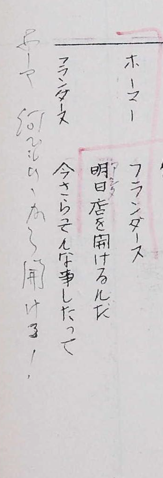 ホーマー　フランダース
明日店を開けるんだ
フランダース　今さらそんな事したって
ホーマー　何でもいいから開けろ！